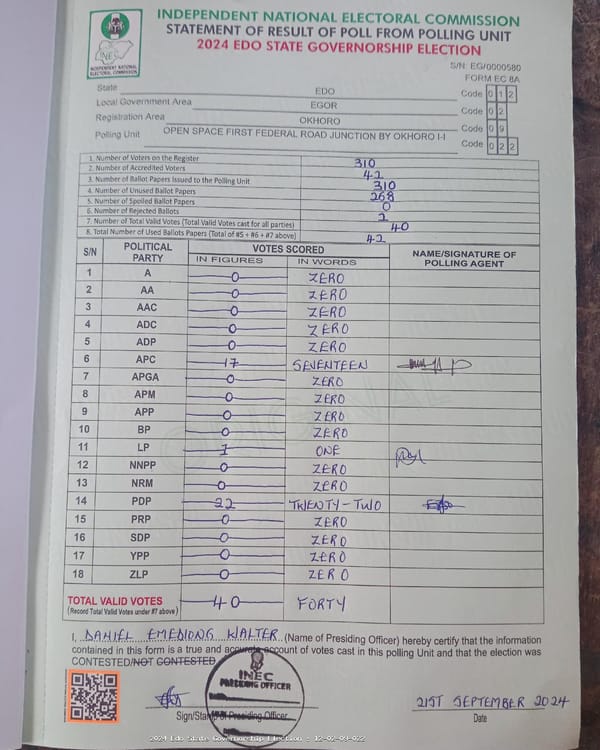 INDEPENDENT NATIONAL ELECTORAL COMMISSION
STATEMENT OF RESULT OF POLL FROM POLLING UNIT
2024 EDO STATE GOVERNORSHIP ELECTION
INEC
INDEPENDENT NATIONAL ELECTORAL COMMISSION
S/N: EG/0000580
FORM EC 8A
State EDO Code 0 1 2
Local Government Area EGOR Code 0 2
Registration Area OKHORO Code 0 9
Polling Unit OPEN SPACE FIRST FEDERAL ROAD JUNCTION BY OKHORO I-I Code 0 2 2
1. Number of Voters on the Register 310
2. Number of Accredited Voters 42
3. Number of Ballot Papers Issued to the Polling Unit 310
4. Number of Unused Ballot Papers 268
5. Number of Spoiled Ballot Papers 0
6. Number of Rejected Ballots 2
7. Number of Total Valid Votes (Total Valid Votes cast for all parties) 40
8. Total Number of Used Ballots Papers (Total of #5 + #6 + #7 above) 42
S/N POLITICAL PARTY VOTES SCORED NAME/SIGNATURE OF POLLING AGENT
IN FIGURES IN WORDS
1 A 0 ZERO
2 AA 0 ZERO
3 AAC 0 ZERO
4 ADC 0 ZERO
5 ADP 0 ZERO
6 APC 17 SEVENTEEN
7 APGA 0 ZERO
8 APM 0 ZERO
9 APP 0 ZERO
10 BP 0 ZERO
11 LP 1 ONE
12 NNPP 0 ZERO
13 NRM 0 ZERO
14 PDP 22 TWENTY-TWO
15 PRP 0 ZERO
16 SDP 0 ZERO
17 YPP 0 ZERO
18 ZLP 0 ZERO
ORIGINAL
TOTAL VALID VOTES 40 FORTY
(Record Total Valid Votes under #7 above)
I, DANIEL EMEDIONG WALTER (Name of Presiding Officer) hereby certify that the information
contained in this form is a true and accurate account of votes cast in this polling Unit and that the election was
CONTESTED/NOT CONTESTED
INEC
PRESIDING OFFICER
21ST SEPTEMBER 2024
Sign/Stamp of Presiding Officer Date
2024 Edo State Governorship Election - 12-02-09-022